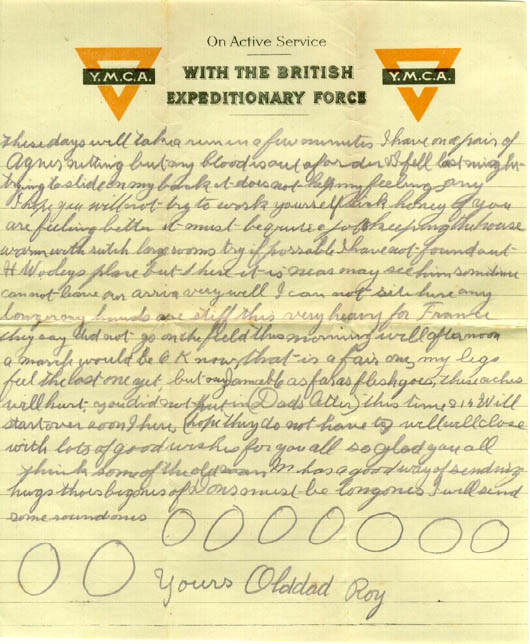 On Active Service
Y.M.C.A.
WITH THE BRITISH
EXPEDITIONARY FORCE
Y.M.C.A.
these days will take a run in a few minutes I have on a pair of
Agnes but my blood is out of order I fell last night
trying to slide on my back it does not help my feeling any
I hope you will not try to work yourself sick honey if you
are feeling better it must be quite a job keeping the house
warm with such large rooms try if possible I have not found out
H Wooleys place but if he is near may see him sometime
cannot leave our very well I can not sit here any
longer my hands are stiff this very heavy for France
they say did not go on the field this morning well afternoon
a march would be O K now, that is a fair one, my legs
feel the last one yet, but as far as flesh goes, these aches
will hurt you did not put in (Dads letter) this time 214 Will
start over soon I hear, (hope they do not have to) well will close
with lots of good wishes for you all so glad you all
think some of the old man M has a good way of sending
hugs those big ones of Dons must be long ones I will send
some round ones
Yours Olddad Roy